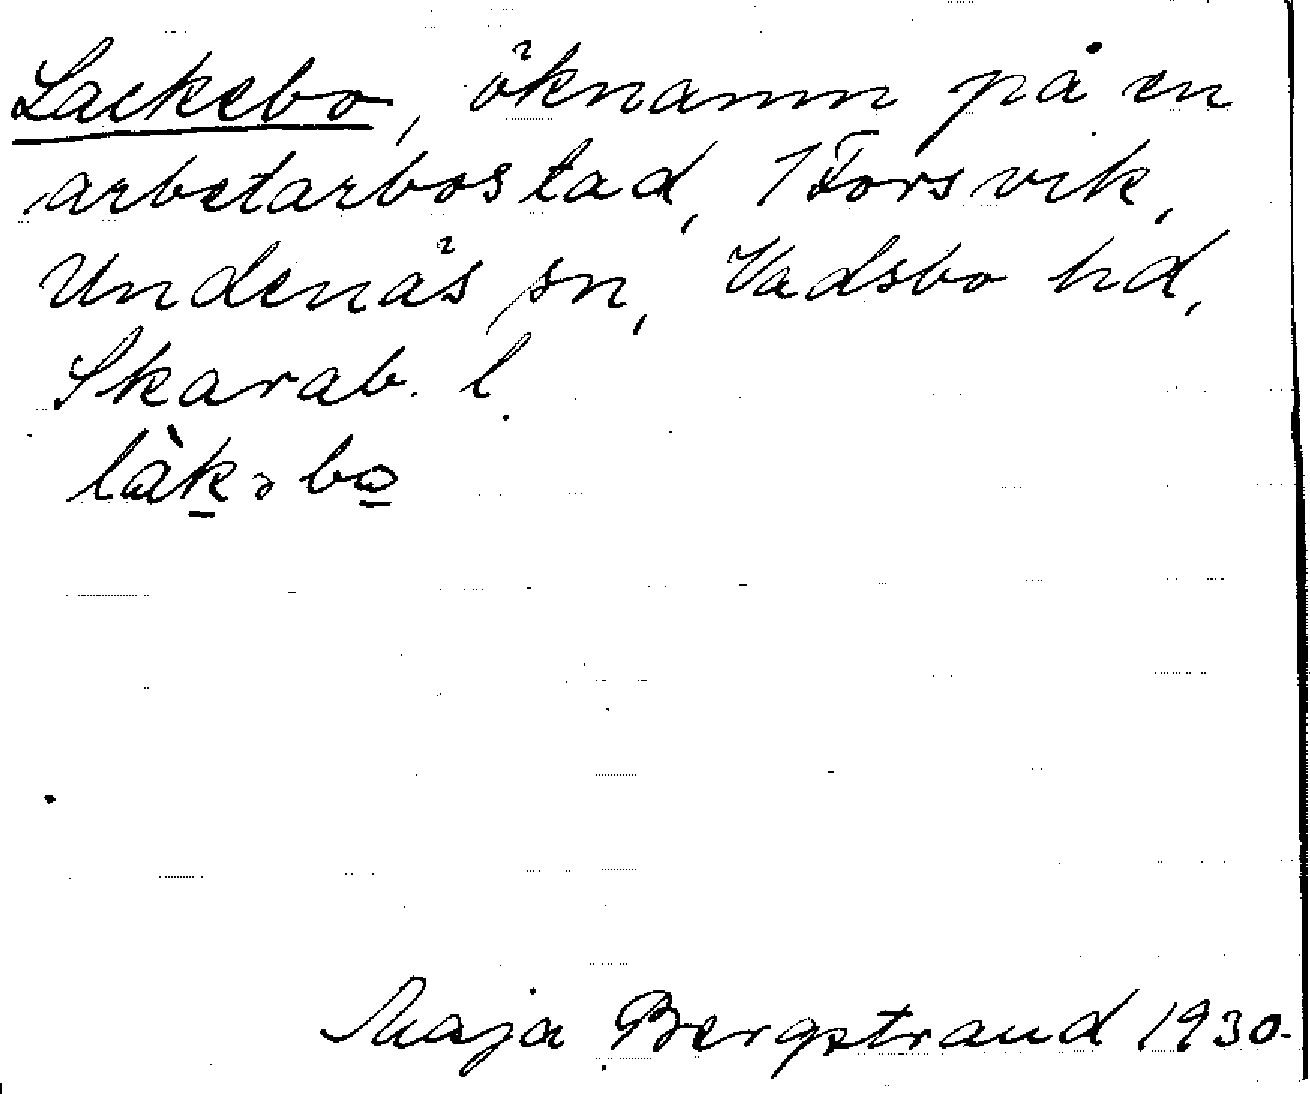 Lackebo, öknamn på en
arbetarbostad, 1 Forsvik,
Undenäs sn, Vadsbo hd,
Skarab. l.
làkəbo
Maja Bergstrand 1930.